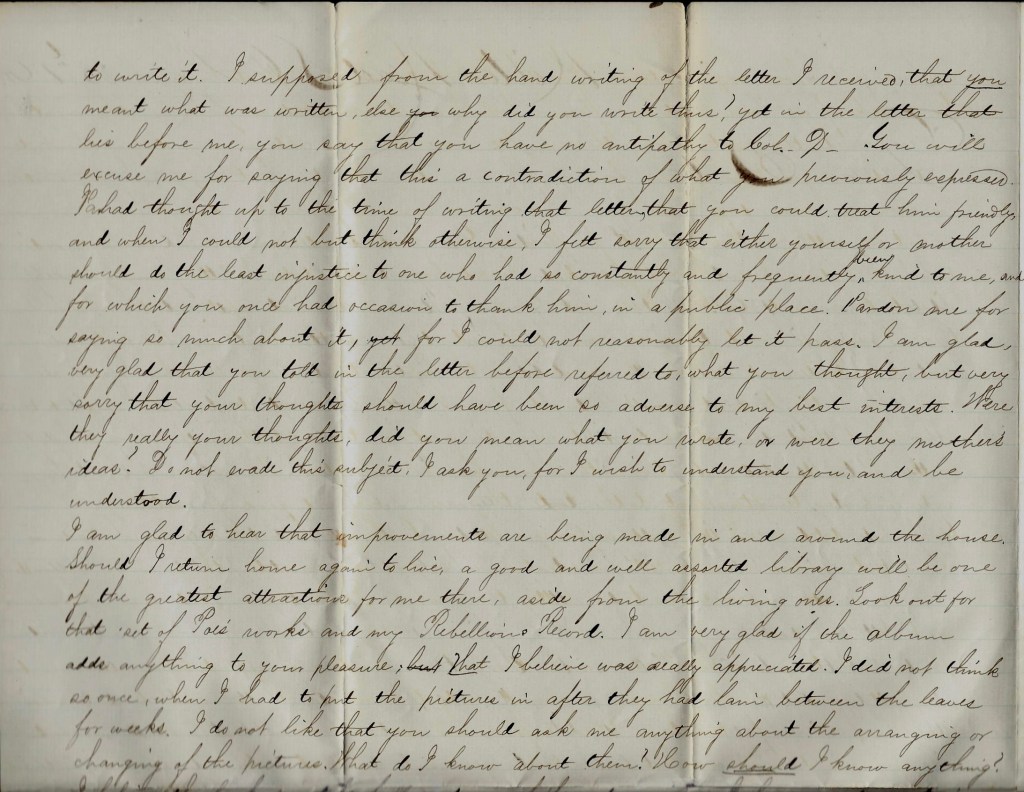 to write it. I supposed from the hand writing of the letter I received, that you
meant what was written, else you why did you write thus? yet in the letter that
lies before me, you say that you have no antipathy to Col. D_ You will
excuse me for saying that this a contradiction of what you previously expressed.
had thought up to the time of writing that letter, that you could treat him friendly,
and when I could not but think otherwise, I felt sorry that either yourself or mother
should do the least injustice to one who had so constantly and frequently been kind to me, and
for which you once had occasion to thank him, in a public place. Pardon me for
saying so much about it, yet for I could not reasonably let it pass. I am glad,
very glad that you told in the letter before referred to, what you thought, but very
sorry that your thoughts should have been so adverse to my best interests. Were
they really your thoughts, did you mean what you wrote, or were they mother's
ideas? Do not evade this subject, I ask you, for I wish to understand you, and be
understood.
I am glad to hear that improvements are being made in and around the house.
Should I return home again to live, a good and well assorted library will be one
of the greatest attractions for me there, aside from the living ones. Look out for
that set of Poe's works and my Rebellion Record. I am very glad if the album
adds anything to your pleasure; but That I believe was really appreciated. I did not think
so once, when I had to put the pictures in after they had lain between the leaves
for weeks. I do not like that you should ask me anything about the arranging or
changing of the pictures. What do I know about them? How should I know anything?